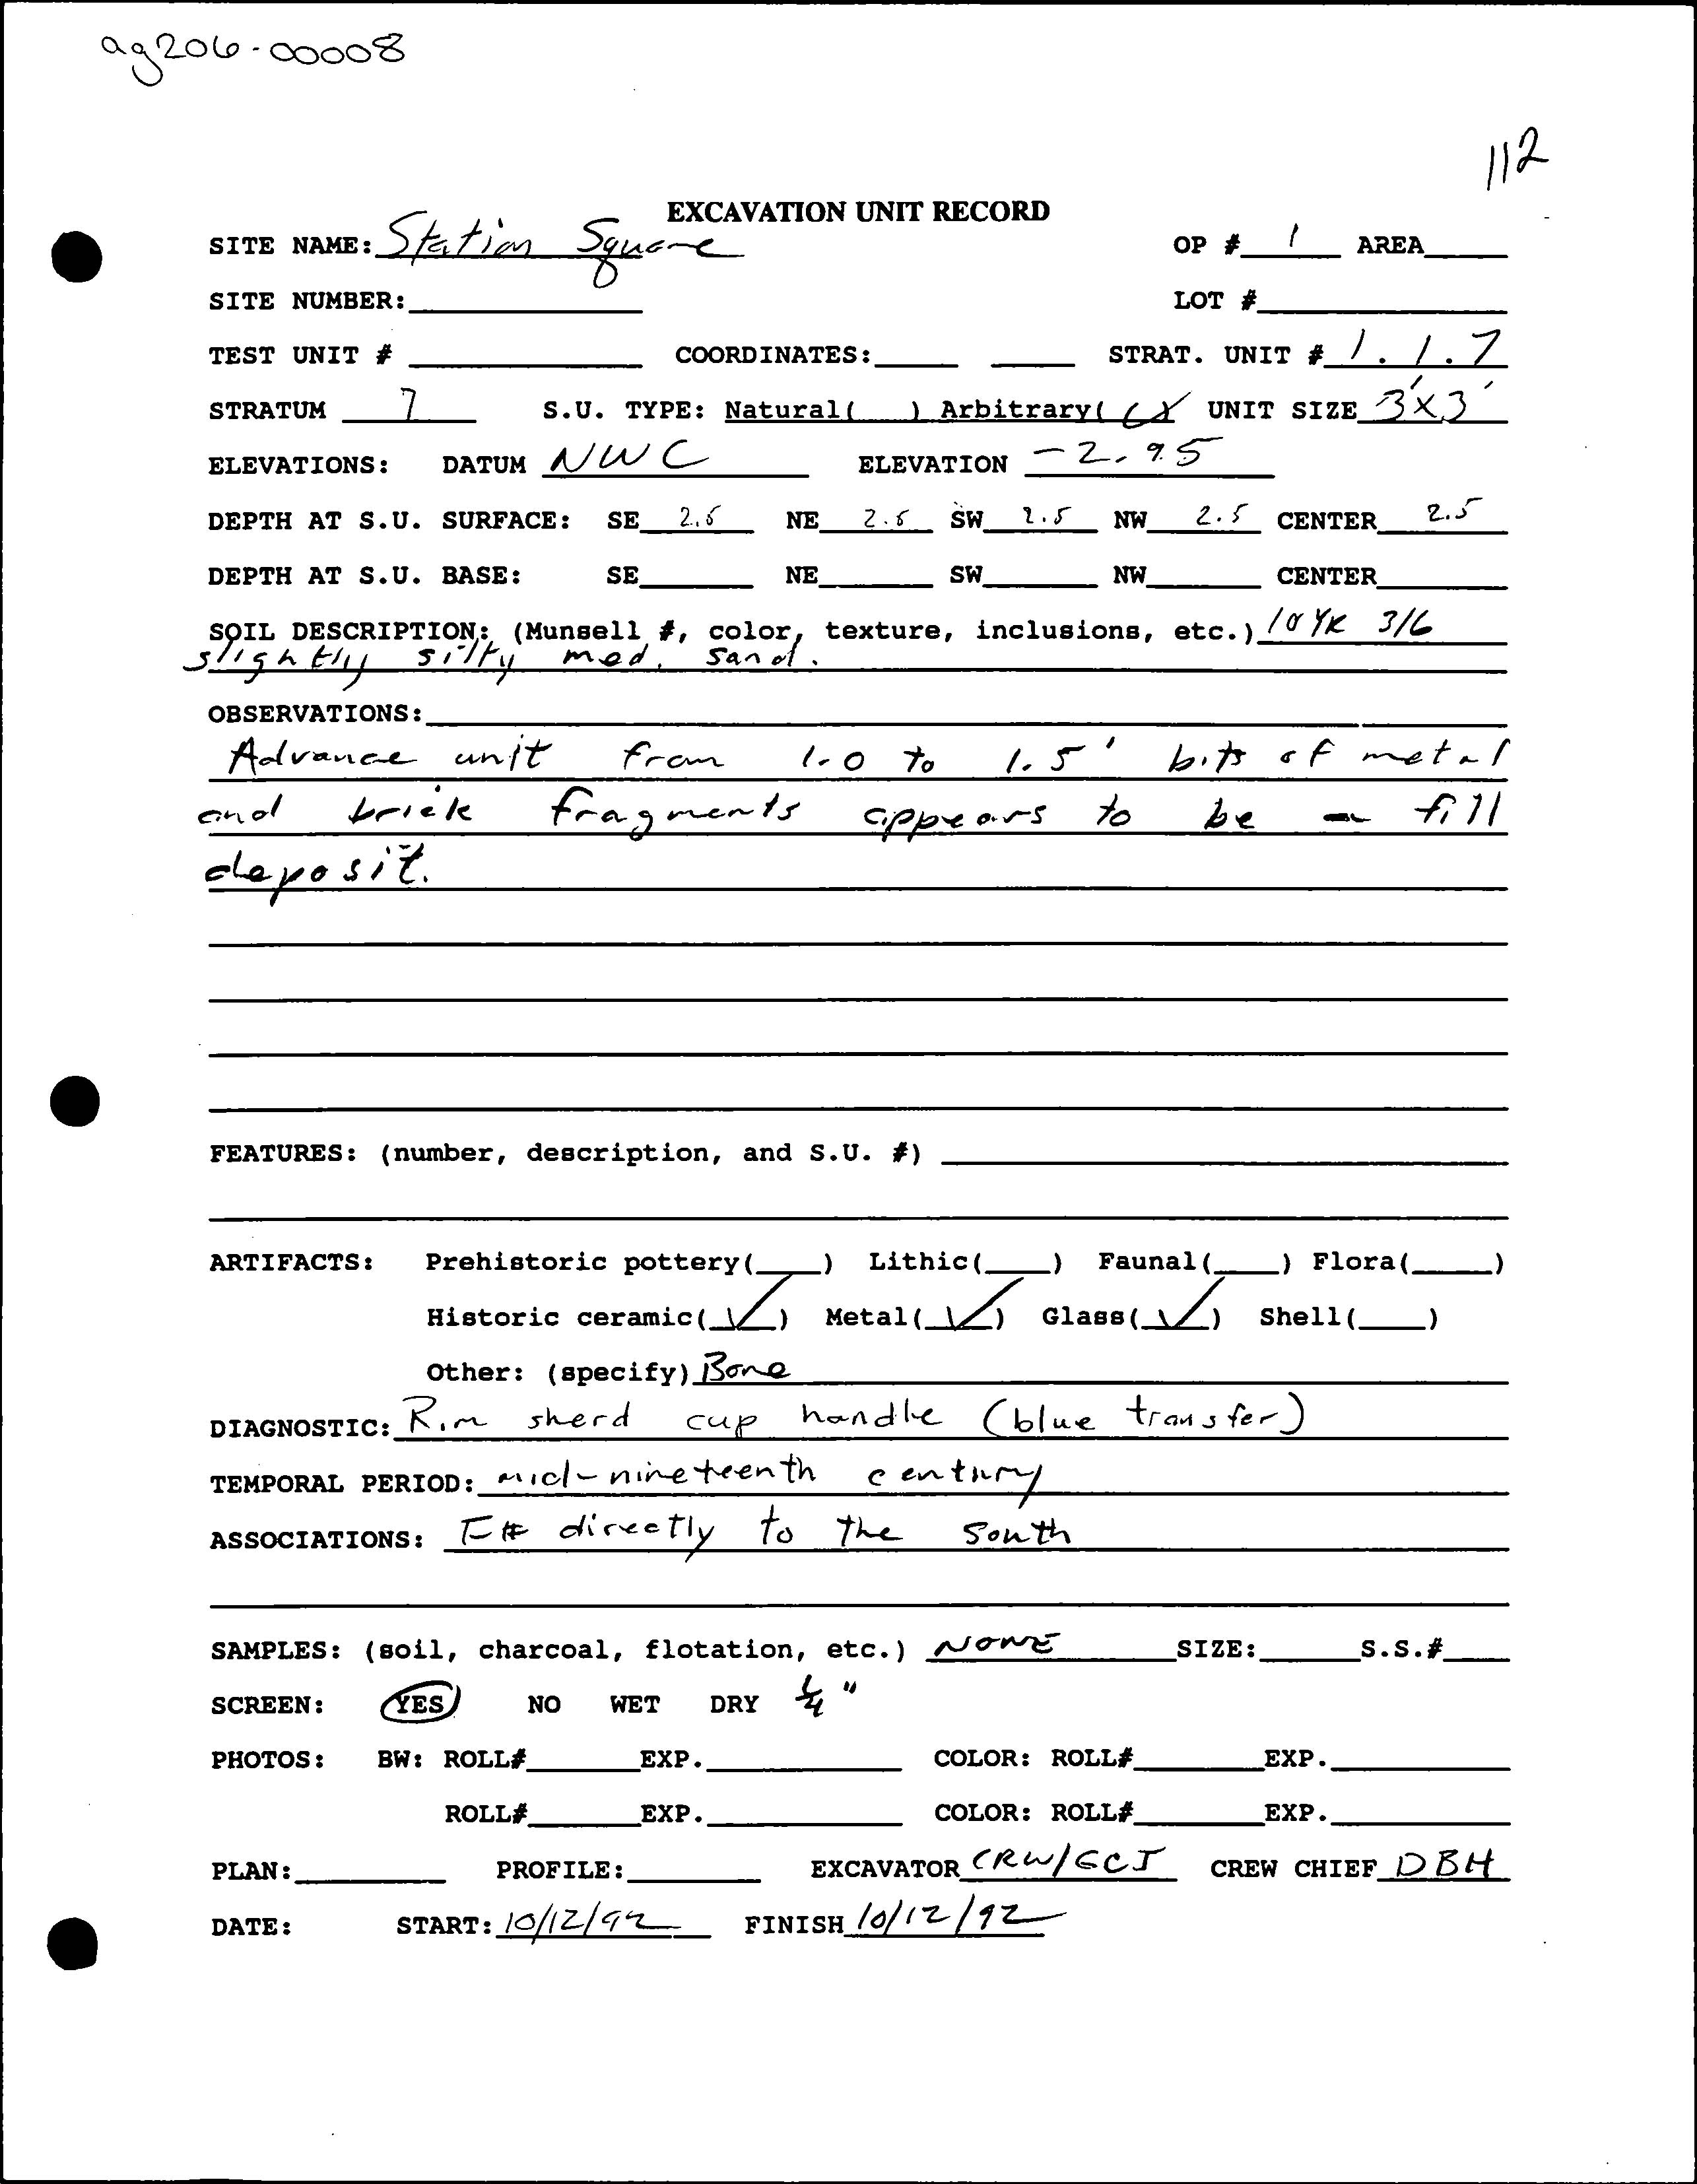 ag206-00008
112
EXCAVATION UNIT RECORD
SITE NAME: Station Square OP # 1 AREA
SITE NUMBER: LOT #
TEST UNIT # COORDINATES: STRAT. UNIT # 1.1.7
STRATUM 7 S.U. TYPE: Natural( ) Arbitrary( X UNIT SIZE 3'x3'
ELEVATIONS: DATUM NWC ELEVATION -2.95
DEPTH AT S.U. SURFACE: SE 2.5 NE 2.5 SW 2.5 NW 2.5 CENTER 2.5
DEPTH AT S.U. BASE: SE NE SW NW CENTER
SOIL DESCRIPTION: (Munsell #, color, texture, inclusions, etc.) 10YR 3/6
slightly silty med. sand.
OBSERVATIONS:
Advance unit from 1.0 to 1.5' bits of metal
and brick fragments appears to be a fill
deposit.
FEATURES: (number, description, and S.U. #)
ARTIFACTS: Prehistoric pottery( ) Lithic( ) Faunal( ) Flora( )
Historic ceramic(✓) Metal(✓) Glass(✓) Shell( )
Other: (specify) Bone
DIAGNOSTIC: Rim sherd cup handle (blue transfer)
TEMPORAL PERIOD: mid-nineteenth century
ASSOCIATIONS: directly to the south
SAMPLES: (soil, charcoal, flotation, etc.) NONE SIZE: S.S.#
SCREEN: YES NO WET DRY 1/4"
PHOTOS: BW: ROLL# EXP. COLOR: ROLL# EXP.
ROLL# EXP. COLOR: ROLL# EXP.
PLAN: PROFILE: EXCAVATOR CRW/GCJ CREW CHIEF DBH
DATE: START: 10/12/92 FINISH 10/12/92